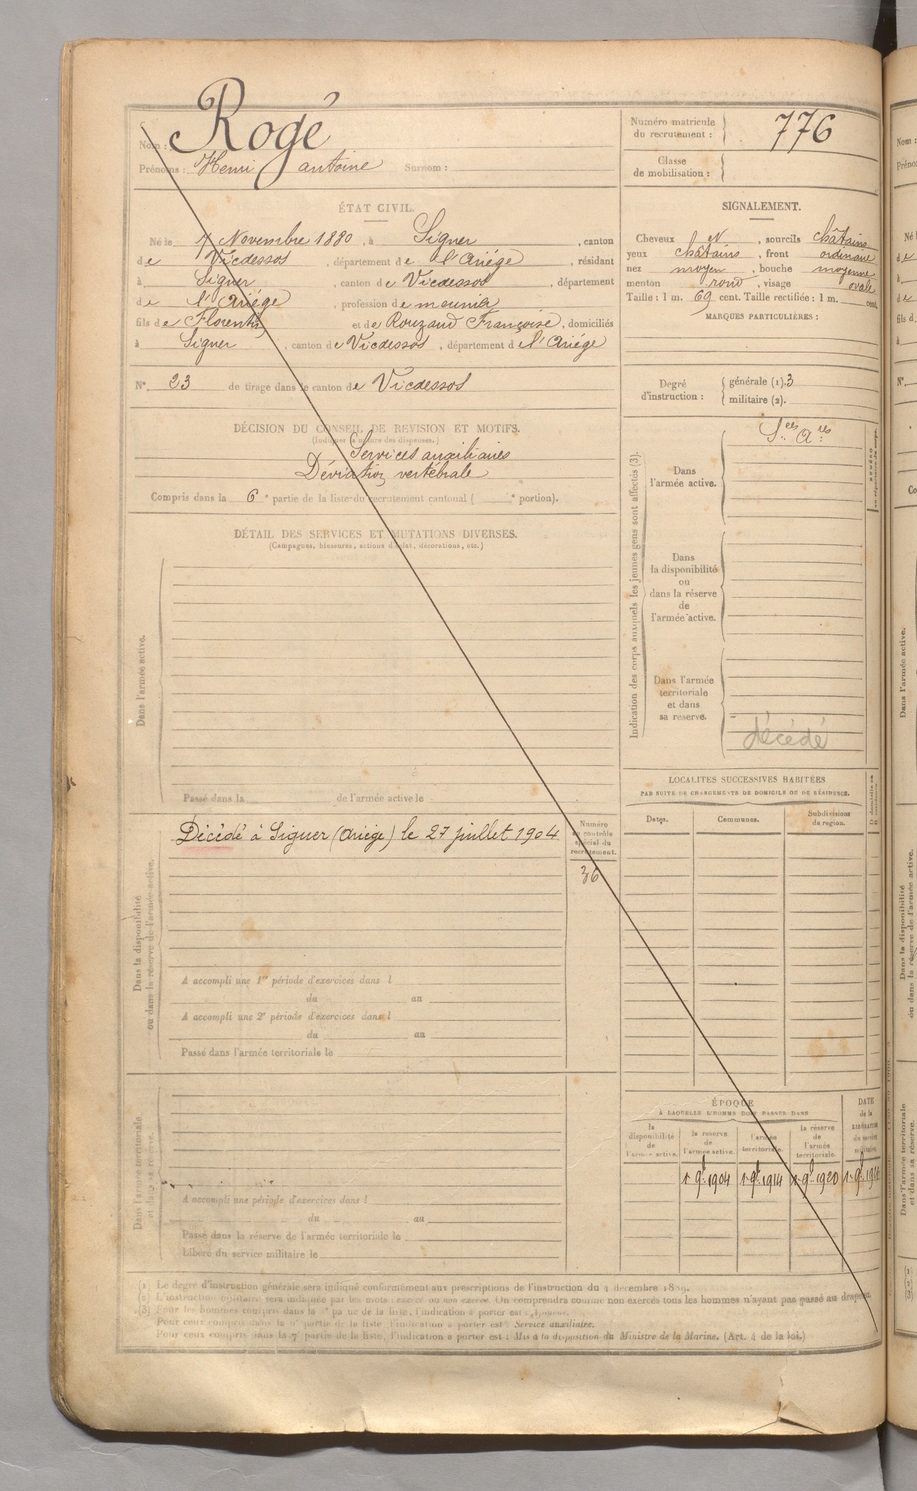 Nom : Rogé
Prénoms : Henri Antoine Surnom :
Numéro matricule du recrutement : 776
Classe de mobilisation :
ÉTAT CIVIL.
Né le 7 Novembre 1880, à Siguer, canton
de Vicdessos, département de l'Ariège, résidant
à Siguer, canton de Vicdessos, département
de l'Ariège, profession de meunier
fils de Florentin et de Rouzaud Françoise, domiciliés
à Siguer, canton de Vicdessos, département de l'Ariège
N° 23 de tirage dans le canton de Vicdessos
SIGNALEMENT.
Cheveux N, sourcils châtains
yeux châtains, front ordinaire
nez moyen, bouche moyenne
menton rond, visage ovale
Taille : 1 m. 69 cent. Taille rectifiée : 1 m. cent.
MARQUES PARTICULIÈRES :
Degré d'instruction : générale (1). 3
militaire (2).
DÉCISION DU CONSEIL DE REVISION ET MOTIFS.
(Indiquer la nature des dispenses.)
Services auxiliaires
Déviation vertébrale
Compris dans la 6e partie de la liste du recrutement cantonal ( e portion).
DÉTAIL DES SERVICES ET MUTATIONS DIVERSES.
(Campagnes, blessures, actions d'éclat, décorations, etc.)
Dans l'armée active.
Passé dans la de l'armée active le
Indication des corps auxquels les jeunes gens sont affectés (3).
Dans l'armée active.
Sces Ares
Dans la disponibilité ou dans la réserve de l'armée active.
Dans l'armée territoriale et dans sa réserve.
décédé
Dans la disponibilité ou dans la réserve de l'armée active.
Décédé à Siguer (Ariège) le 27 juillet 1904
Numéro au contrôle spécial du recrutement.
36
A accompli une 1re période d'exercices dans l
du au
A accompli une 2e période d'exercices dans l
du au
Passé dans l'armée territoriale le
LOCALITÉS SUCCESSIVES HABITÉES
PAR SUITE DE CHANGEMENTS DE DOMICILE OU DE RÉSIDENCE.
Dates. Communes. Subdivisions de région.
Dans l'armée territoriale et dans sa réserve.
A accompli une période d'exercices dans l
du au
Passé dans la réserve de l'armée territoriale le
Libéré du service militaire le
ÉPOQUE
À LAQUELLE L'HOMME DOIT PASSER DANS
la disponibilité de l'armée active.
la réserve de l'armée active.
l'armée territoriale.
la réserve de l'armée territoriale.
DATE de la libération du service militaire.
1 9bre 1904 1 9bre 1914 1 9bre 1920
(1) Le degré d'instruction générale sera indiqué conformément aux prescriptions de l'instruction du 4 décembre 1889.
(2) L'instruction militaire sera indiquée par les mots : exercé ou non exercé. On comprendra comme non exercés tous les hommes n'ayant pas passé au drapeau.
(3) Pour les hommes compris dans la partie de la liste, l'indication à porter est :
Pour ceux compris dans la 6e partie de la liste, l'indication à porter est : Service auxiliaire.
Pour ceux compris dans la 7e partie de la liste, l'indication à porter est : Mis à la disposition du Ministre de la Marine. (Art. 4 de la loi.)